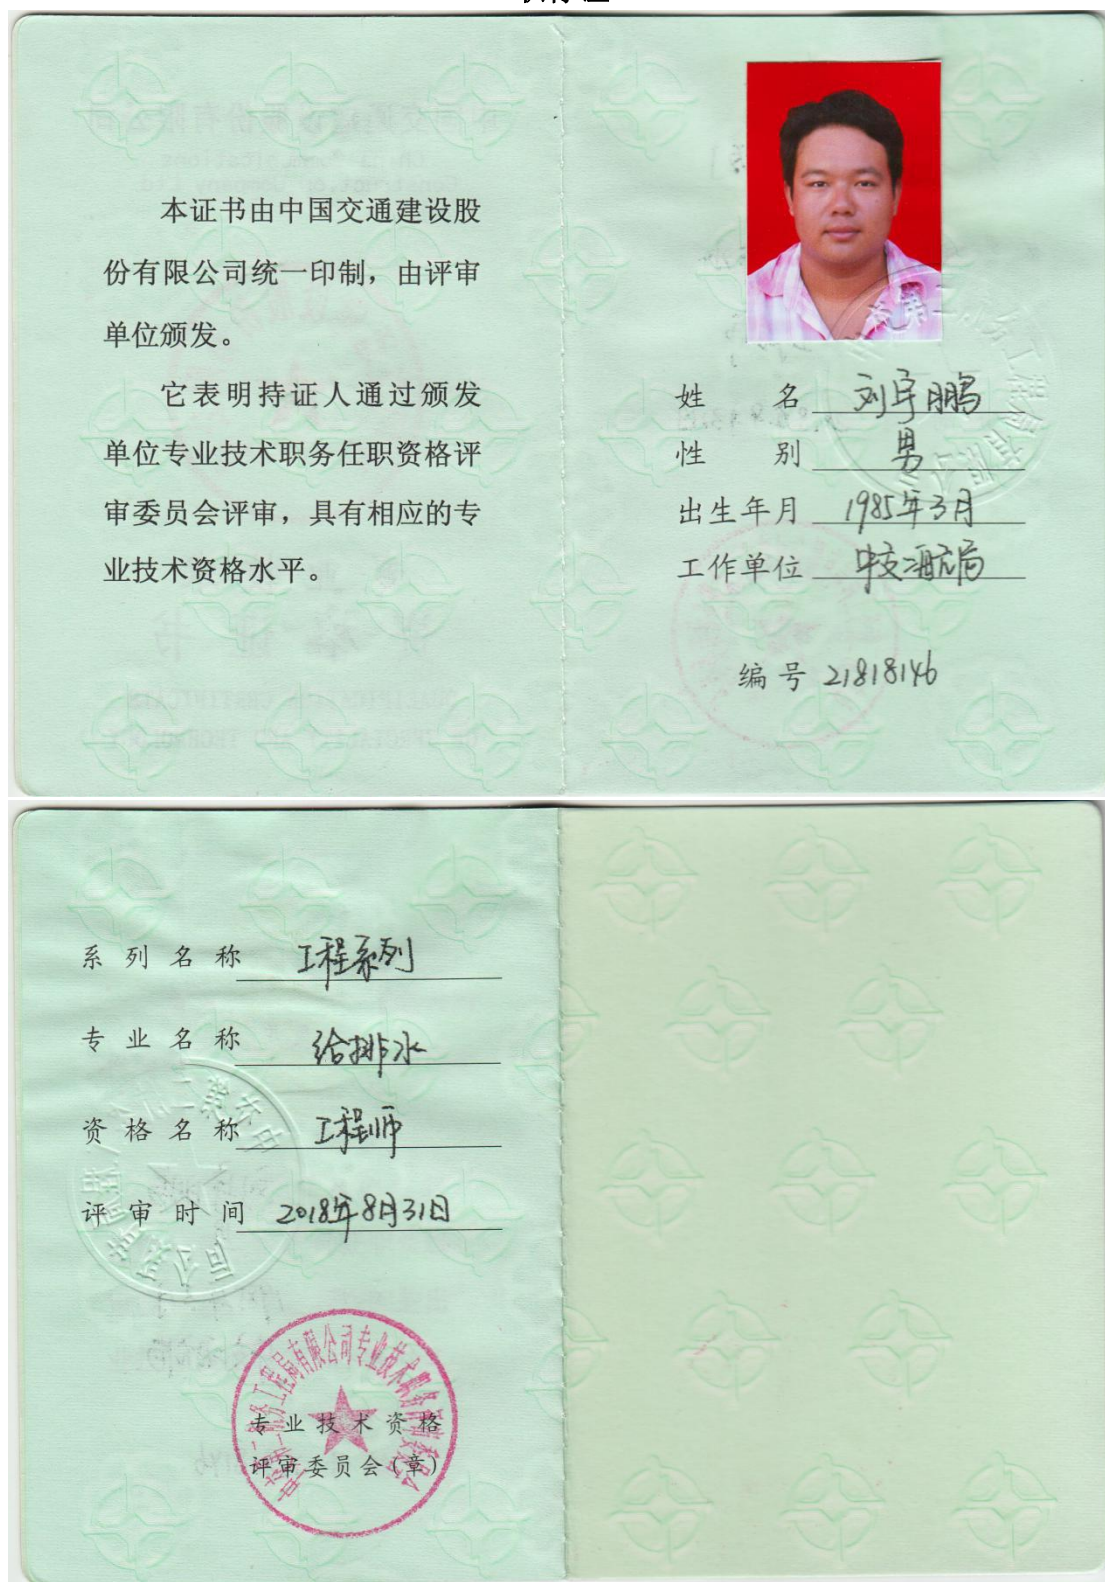 本证书由中国交通建设股
份有限公司统一印制，由评审
单位颁发。
它表明持证人通过颁发
单位专业技术职务任职资格评
审委员会评审，具有相应的专
业技术资格水平。
姓 名 刘宇鹏
性 别 男
出生年月 1985年3月
工作单位 中交二航局
编号 21818146
系列名称 工程系列
专业名称 给排水
资格名称 工程师
评审时间 2018年8月31日
工程局有限公司专业技术职务
专业技术资格
评审委员会(章)